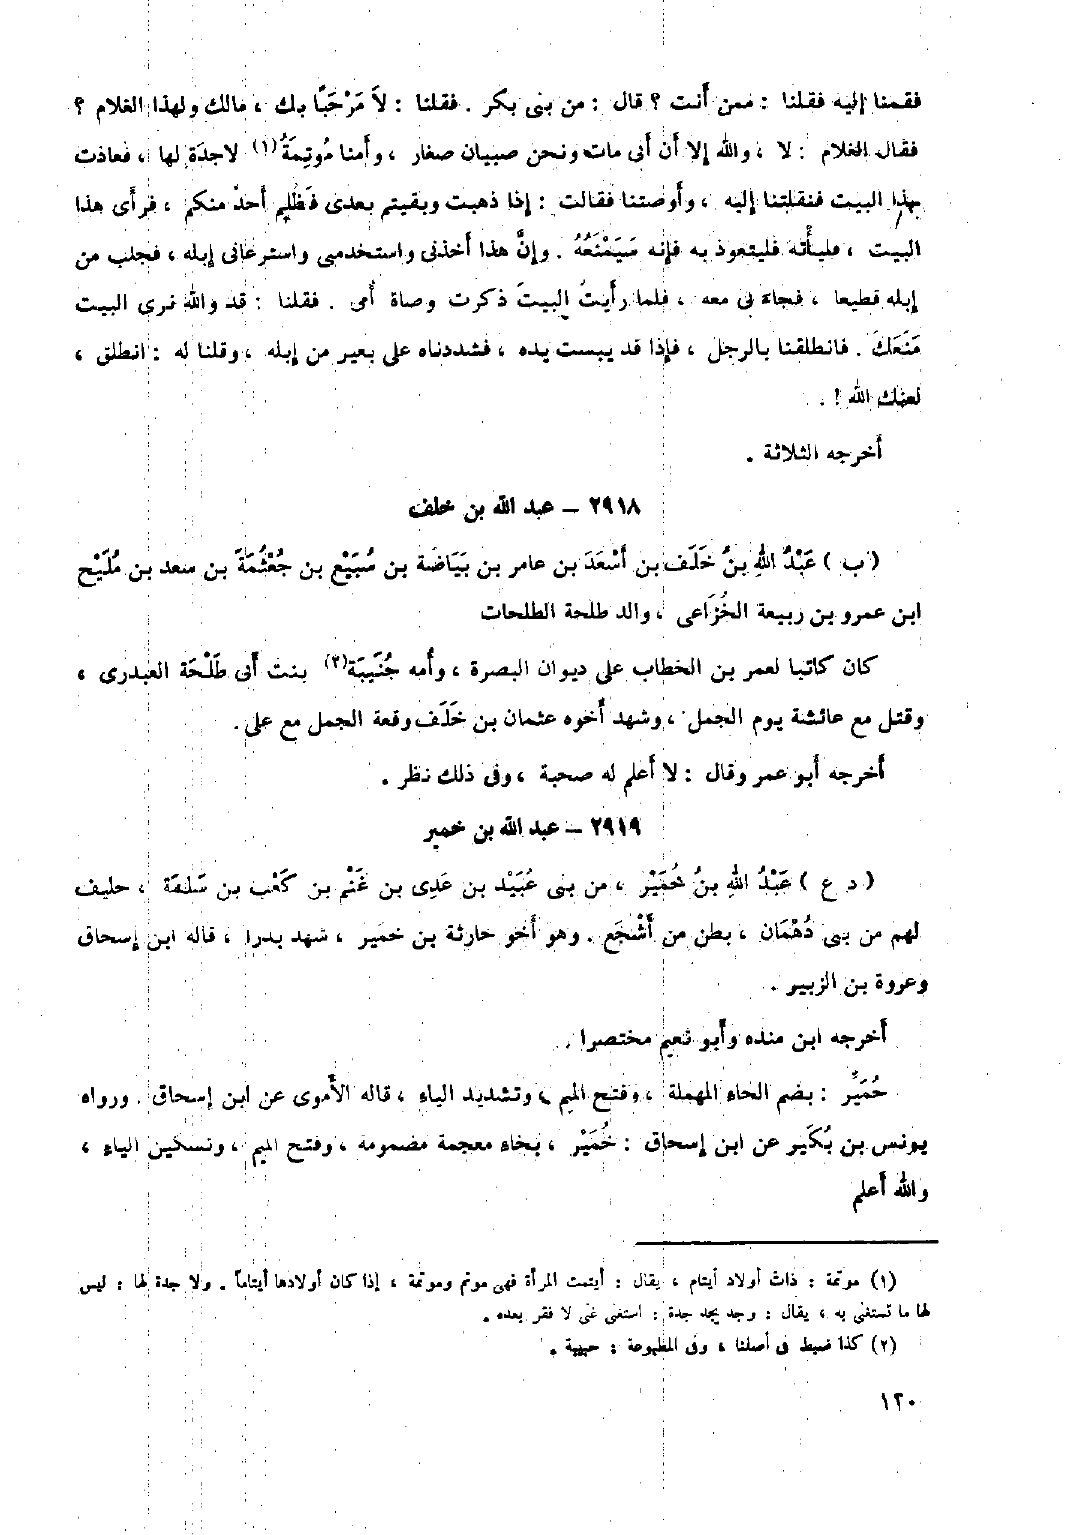 فقمنا إليه فقلنا : ممن أَنت ؟ قال : من بنى بكر . فقلنا : لاَ مَرْحَبًا بك ، مالك ولهذا الغلام ؟
فقال الغلام : لا ، والله إلا أن أبى مات ونحن صبيان صغار ، وأمنا مُوتِمَةُ (١) لاجدَة لها ، فعاذت
بهذا البيت فنقلتنا إليه ، وأوصتنا فقالت : إذا ذهبت وبقيتم بعدى فَظُلِم أحدٌ منكم ، فرأى هذا
البيت ، فليأته فليتعوذ به فإنه سَيَمْنَعُهُ . وإنَّ هذا أخذنى واستخدمنى واسترعانى إبله ، فجلب من
إبله قطيعا ، فجاءَ بى معه ، فلما رأَيتُ البيتَ ذكرت وصاة أمى . فقلنا : قد والله نرى البيت
مَنَعَكَ . فانطلقنا بالرجل ، فإذا قد يبست يده ، فشددناه على بعير من إبله ، وقلنا له : انطلق ،
لعنك الله ! .
أخرجه الثلاثة .
٢٩١٨ – عبد الله بن خلف
( ب ) عَبْدُ اللهِ بنُ خَلَف بن أَسْعَدَ بن عامر بن بَيَاضَة بن سُبَيْع بن جُعْثُمَةَ بن سعد بن مُلَيْح
ابن عمرو بن ربيعة الخُزَاعى ، والد طلحة الطلحات
كان كاتبا لعمر بن الخطاب على ديوان البصرة ، وأُمه جُنَيبَة (٢) بنت أبى طَلْحَة العبدرى ،
وقتل مع عائشة يوم الجمل ، وشهد أخوه عثمان بن خَلَف وقعة الجمل مع على .
أخرجه أبو عمر وقال : لا أعلم له صحبة ، وفى ذلك نظر .
٢٩١٩ – عبد الله بن خمير
( د ع ) عَبْدُ اللهِ بنُ خُمَيْر ، من بنى عُبَيْد بن عَدِى بن غَنْم بن كَعْب بن سَلِمَة ، حليف
لهم من بنى دُهْمَان ، بطن من أَشْجَع . وهو أخو حارثة بن خمير ، شهد بدرا ، قاله ابن إسحاق
وعروة بن الزبير .
أخرجه ابن منده وأبو نعيم مختصرا .
حُمَيِّر : بضم الحاء المهملة ، وفتح الميم ، وتشديد الياء ، قاله الأموى عن ابن إسحاق . ورواه
يونس بن بُكَير عن ابن إسحاق : خُمَيْر ، بخاء معجمة مضمومة ، وفتح الميم ، وتسكين الياء ،
والله أعلم
(١) موتمة : ذات أولاد أيتام ، يقال : أيتمت المرأة فهى موتم وموتمة ، إذا كان أولادها أيتاماً . ولا جدة لها : ليس
لها ما تستغنى به ، يقال : وجد يجد جدة : استغنى غنى لا فقر بعده .
(٢) كذا ضبط فى أصلنا ، وفى المطبوعة : حبيبة .
١٢٠